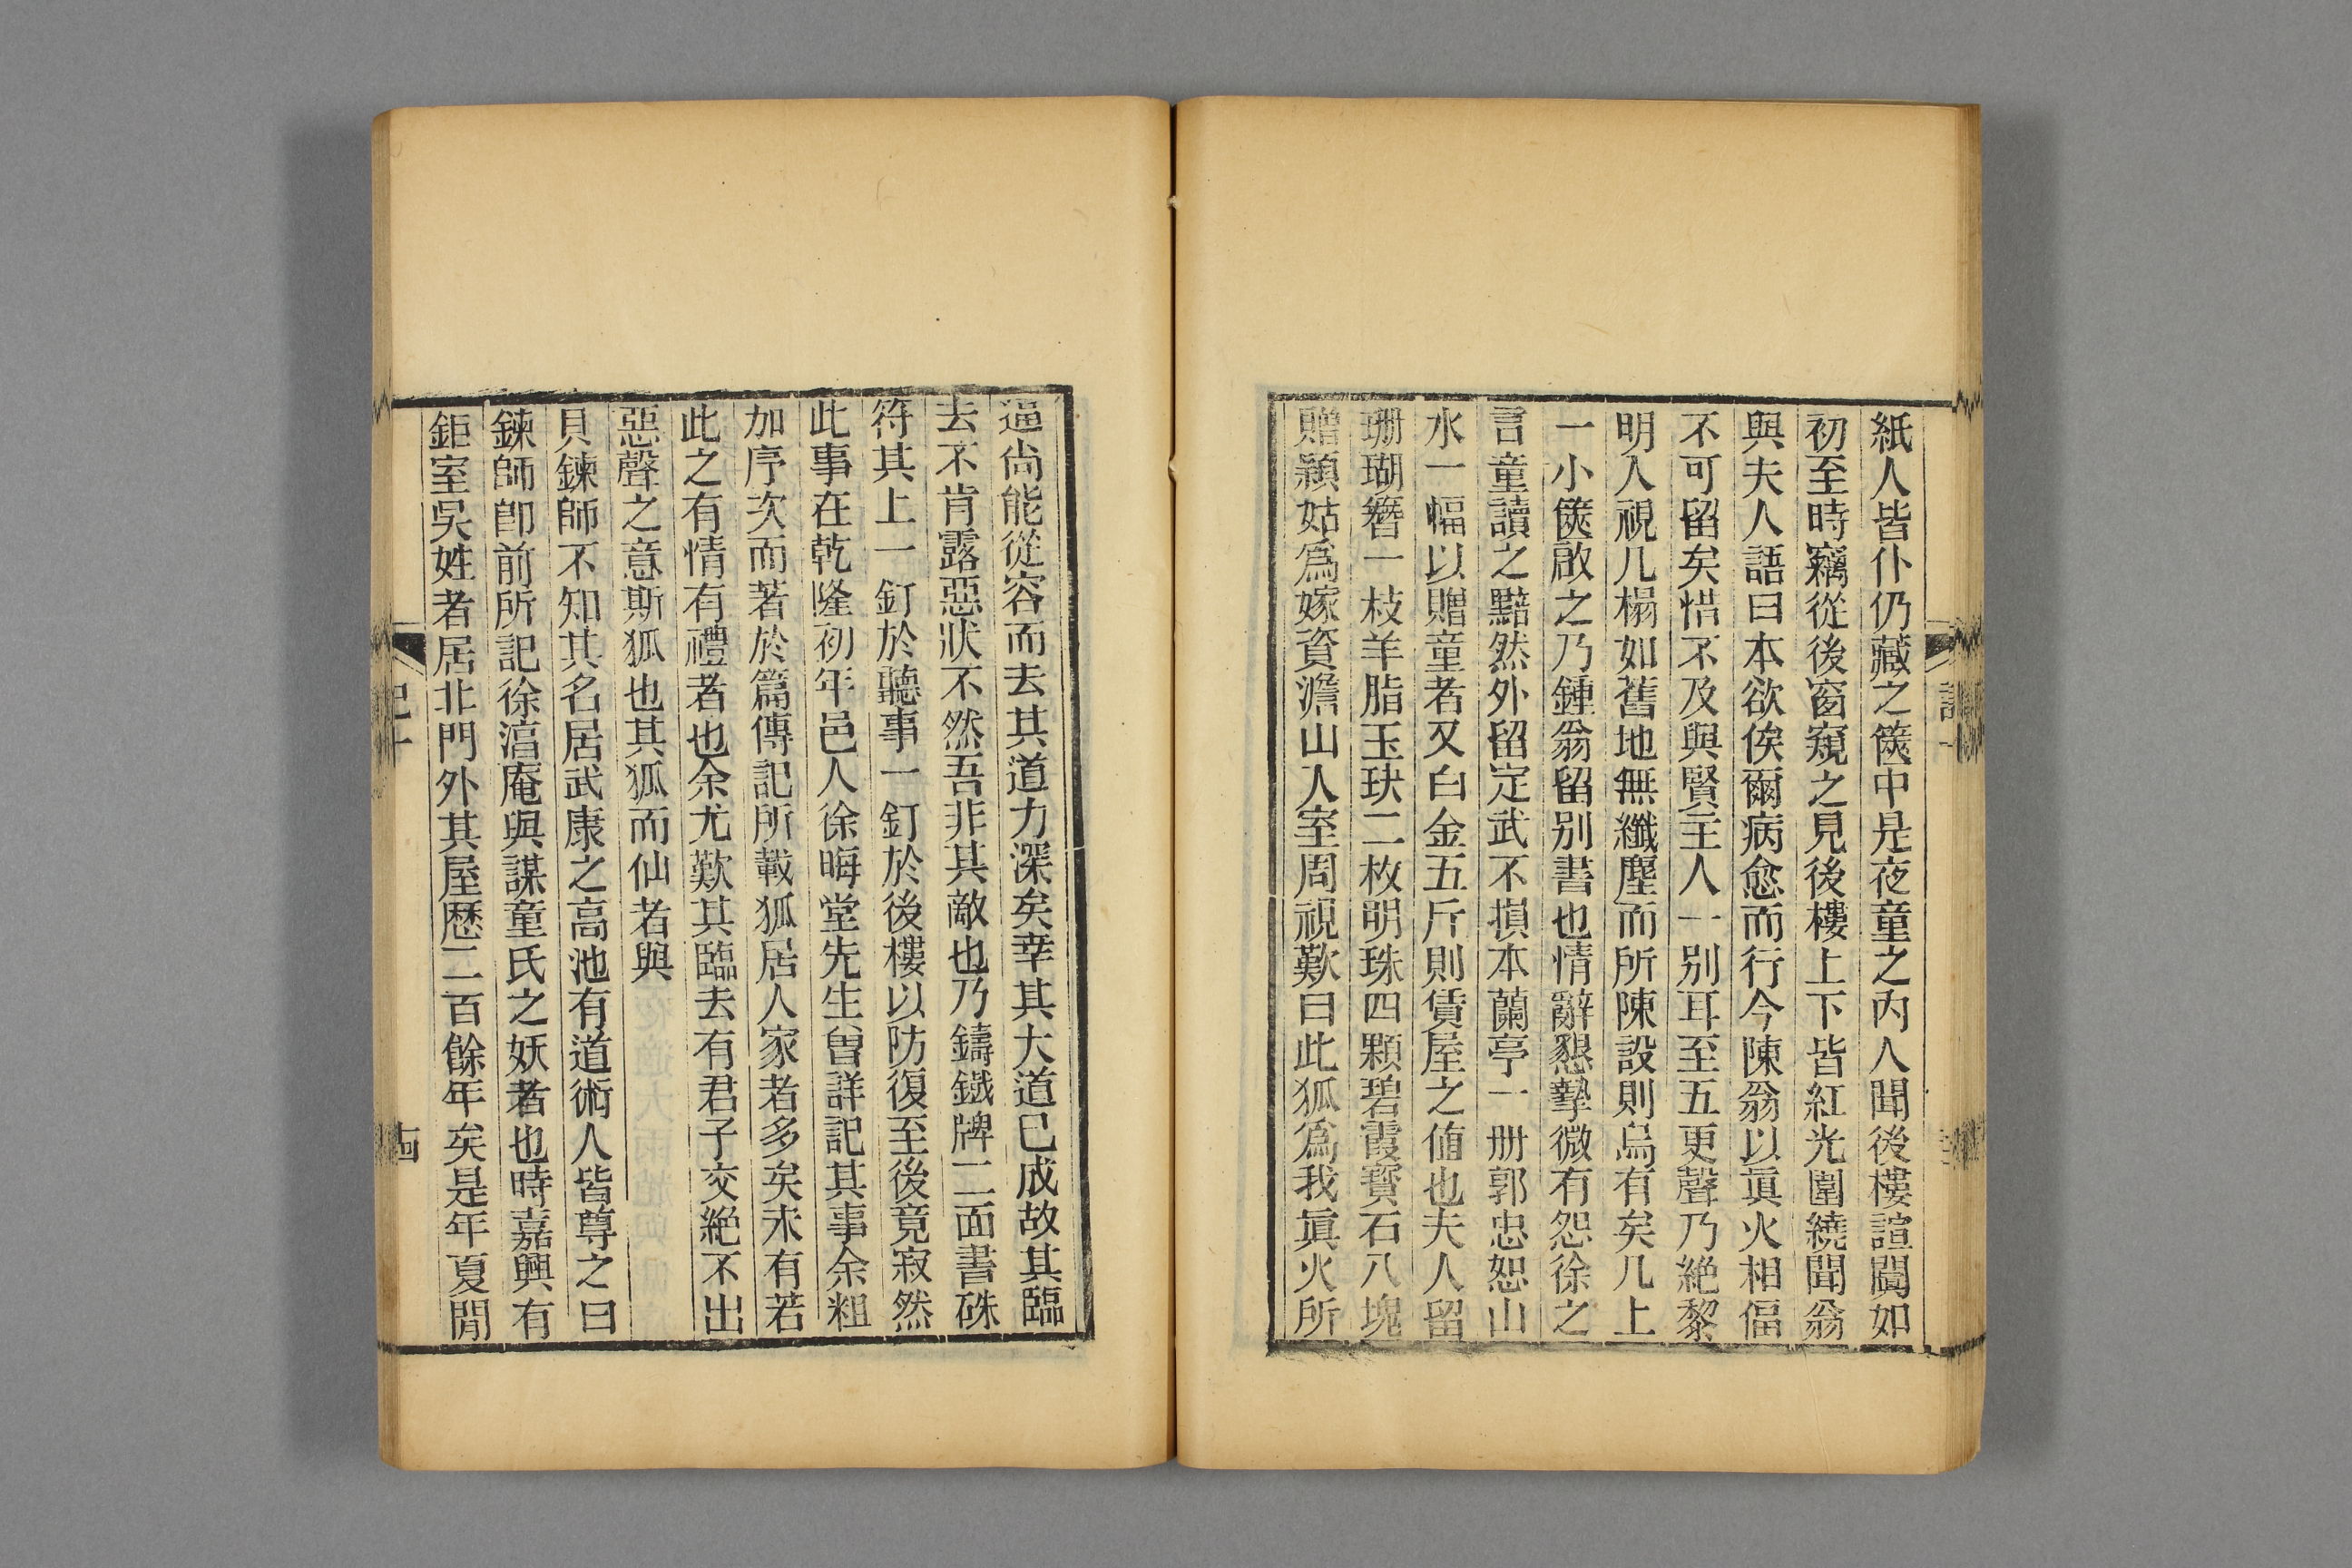 紙人皆仆仍藏之篋中是夜童之內人聞後樓諠闐如
初至時竊從後窗窺之見後樓上下皆紅光圍繞聞翁
與夫人語曰本欲俟爾病愈而行今陳翁以眞火相偪
不可留矣惜不及與賢主人一别耳至五更聲乃絶黎
明入視几榻如舊地無纖塵而所陳設則烏有矣几上
一小篋啟之乃鍾翁留别書也情辭懇摯微有怨徐之
言童讀之黯然外留定武不損本蘭亭一册郭忠恕山
水一幅以贈童者又白金五斤則賃屋之値也夫人留
珊瑚簪一枝羊脂玉玦二枚明珠四顆碧霞寶石八塊
贈穎姑爲嫁資澹山入室周視歎曰此狐爲我眞火所
逼尙能從容而去其道力深矣幸其大道已成故其臨
去不肯露惡狀不然吾非其敵也乃鑄鐵牌二面書硃
符其上一釘於聽事一釘於後樓以防復至後竟寂然
此事在乾隆初年邑人徐晦堂先生曾詳記其事余粗
加序次而著於篇傳記所載狐居人家者多矣未有若
此之有情有禮者也余尤歎其臨去有君子交絶不出
惡聲之意斯狐也其狐而仙者與
貝鍊師不知其名居武康之高池有道術人皆尊之曰
鍊師卽前所記徐㴑庵與謀童氏之妖者也時嘉興有
鉅室吳姓者居北門外其屋歷二百餘年矣是年夏閒
記十
十四